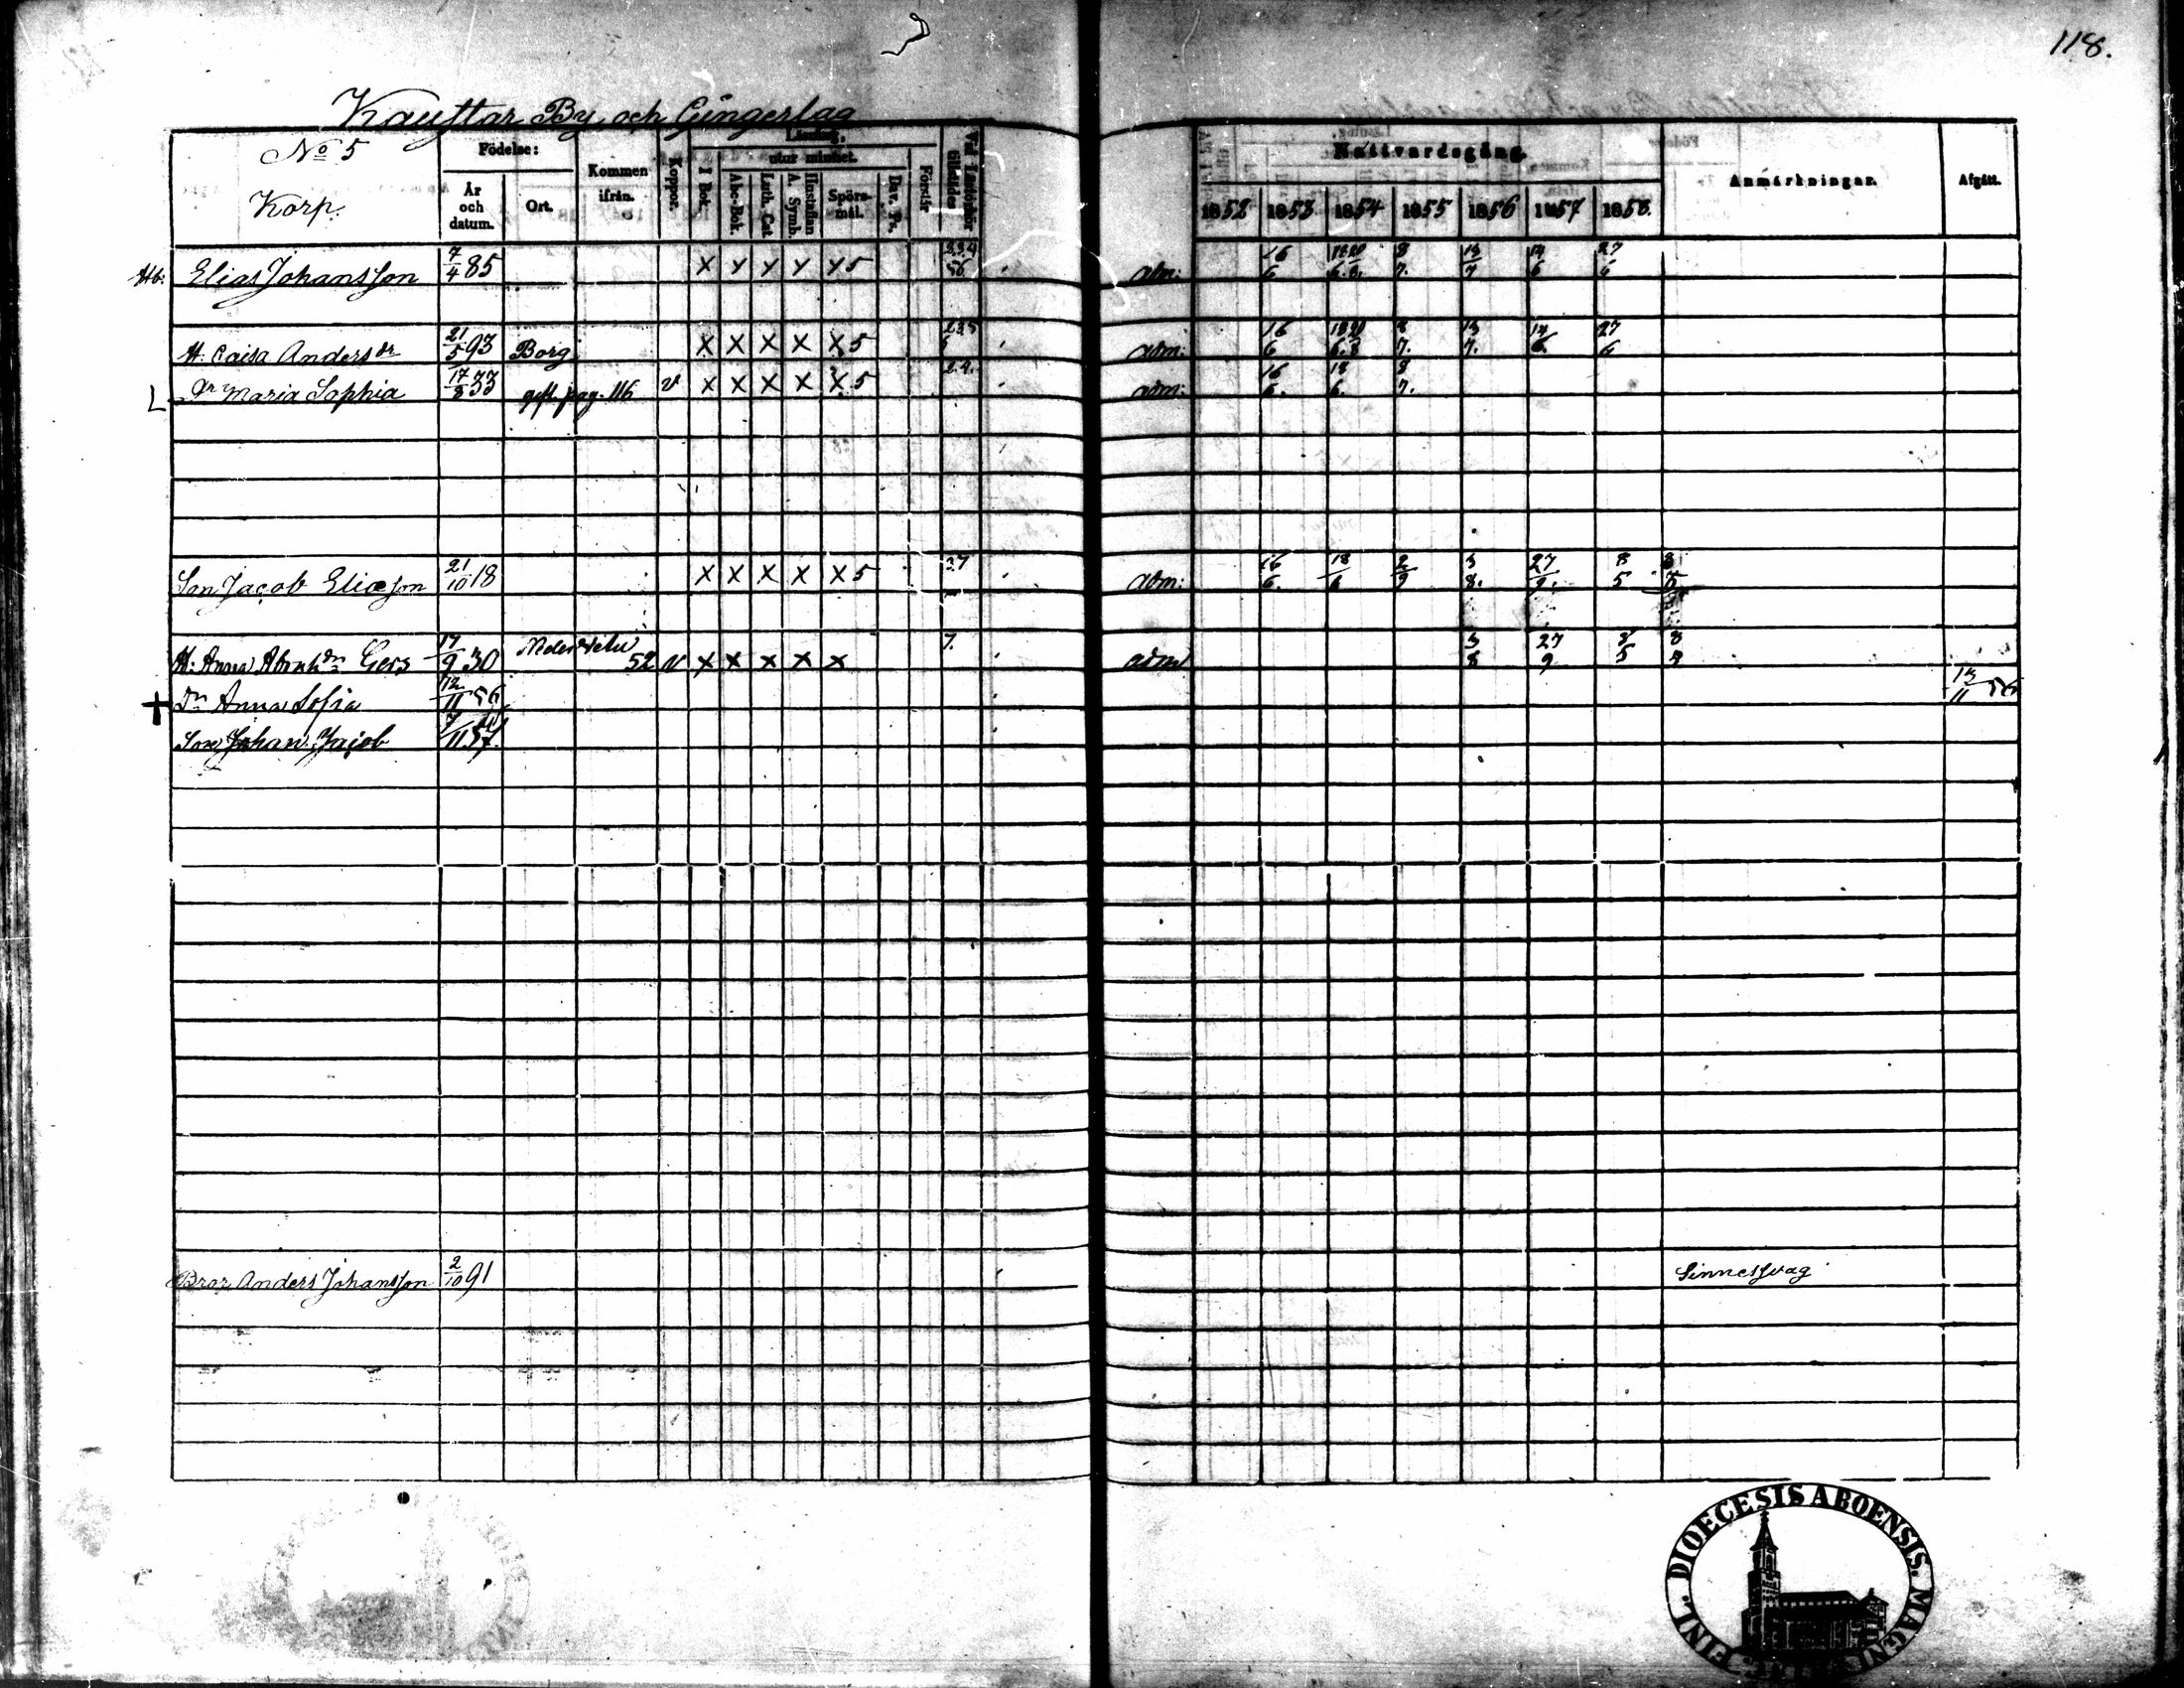 118.
Kauttar By och Gingerlag
No 5
Korp.
Födelse:
År och datum.
Ort.
Kommen ifrån.
Koppor.
Läsning,
utur minnet.
I Bok.
Abc-Bok.
Luth. Cat.
A. Symb.
Hustaflan
Spörsmål.
Dav. Ps.
Förstår
Nattvardsgång.
1852 1853 1854 1855 1856 1857 1858.
Anmärkningar.
Afgått.
Elias Johansson 7/4 85 x x x x x 5 adm: 16/6 8/7. 13/7 14/6 27/6
H. Caisa Andersdr 21/5 93 Borg x x x x x 5 adm: 16/6 8/7. 13/7. 14/6. 27/6
Dr Maria Sophia 17/8 33 gift. pag. 116 v x x x x x 5 2.4. adm: 16/6. 18/6. 8/7.
Son Jacob Eliasson 21/10 18 x x x x x 5 adm: 16/6. 18/6 2/9 3/8. 27/9. 8/5
H: Anna Abrahdr Gers 17/9 30 52 v x x x x x 7. adm 3/8 27/9 8/5
+ Dr Anna Sofia 12/11 56 13/11 56
Son Johan Jacob 7/11 57.
Bror Anders Johansson 2/10 91 Sinnessvag
DIOECESIS ABOENSIS. MAGNI FINL.